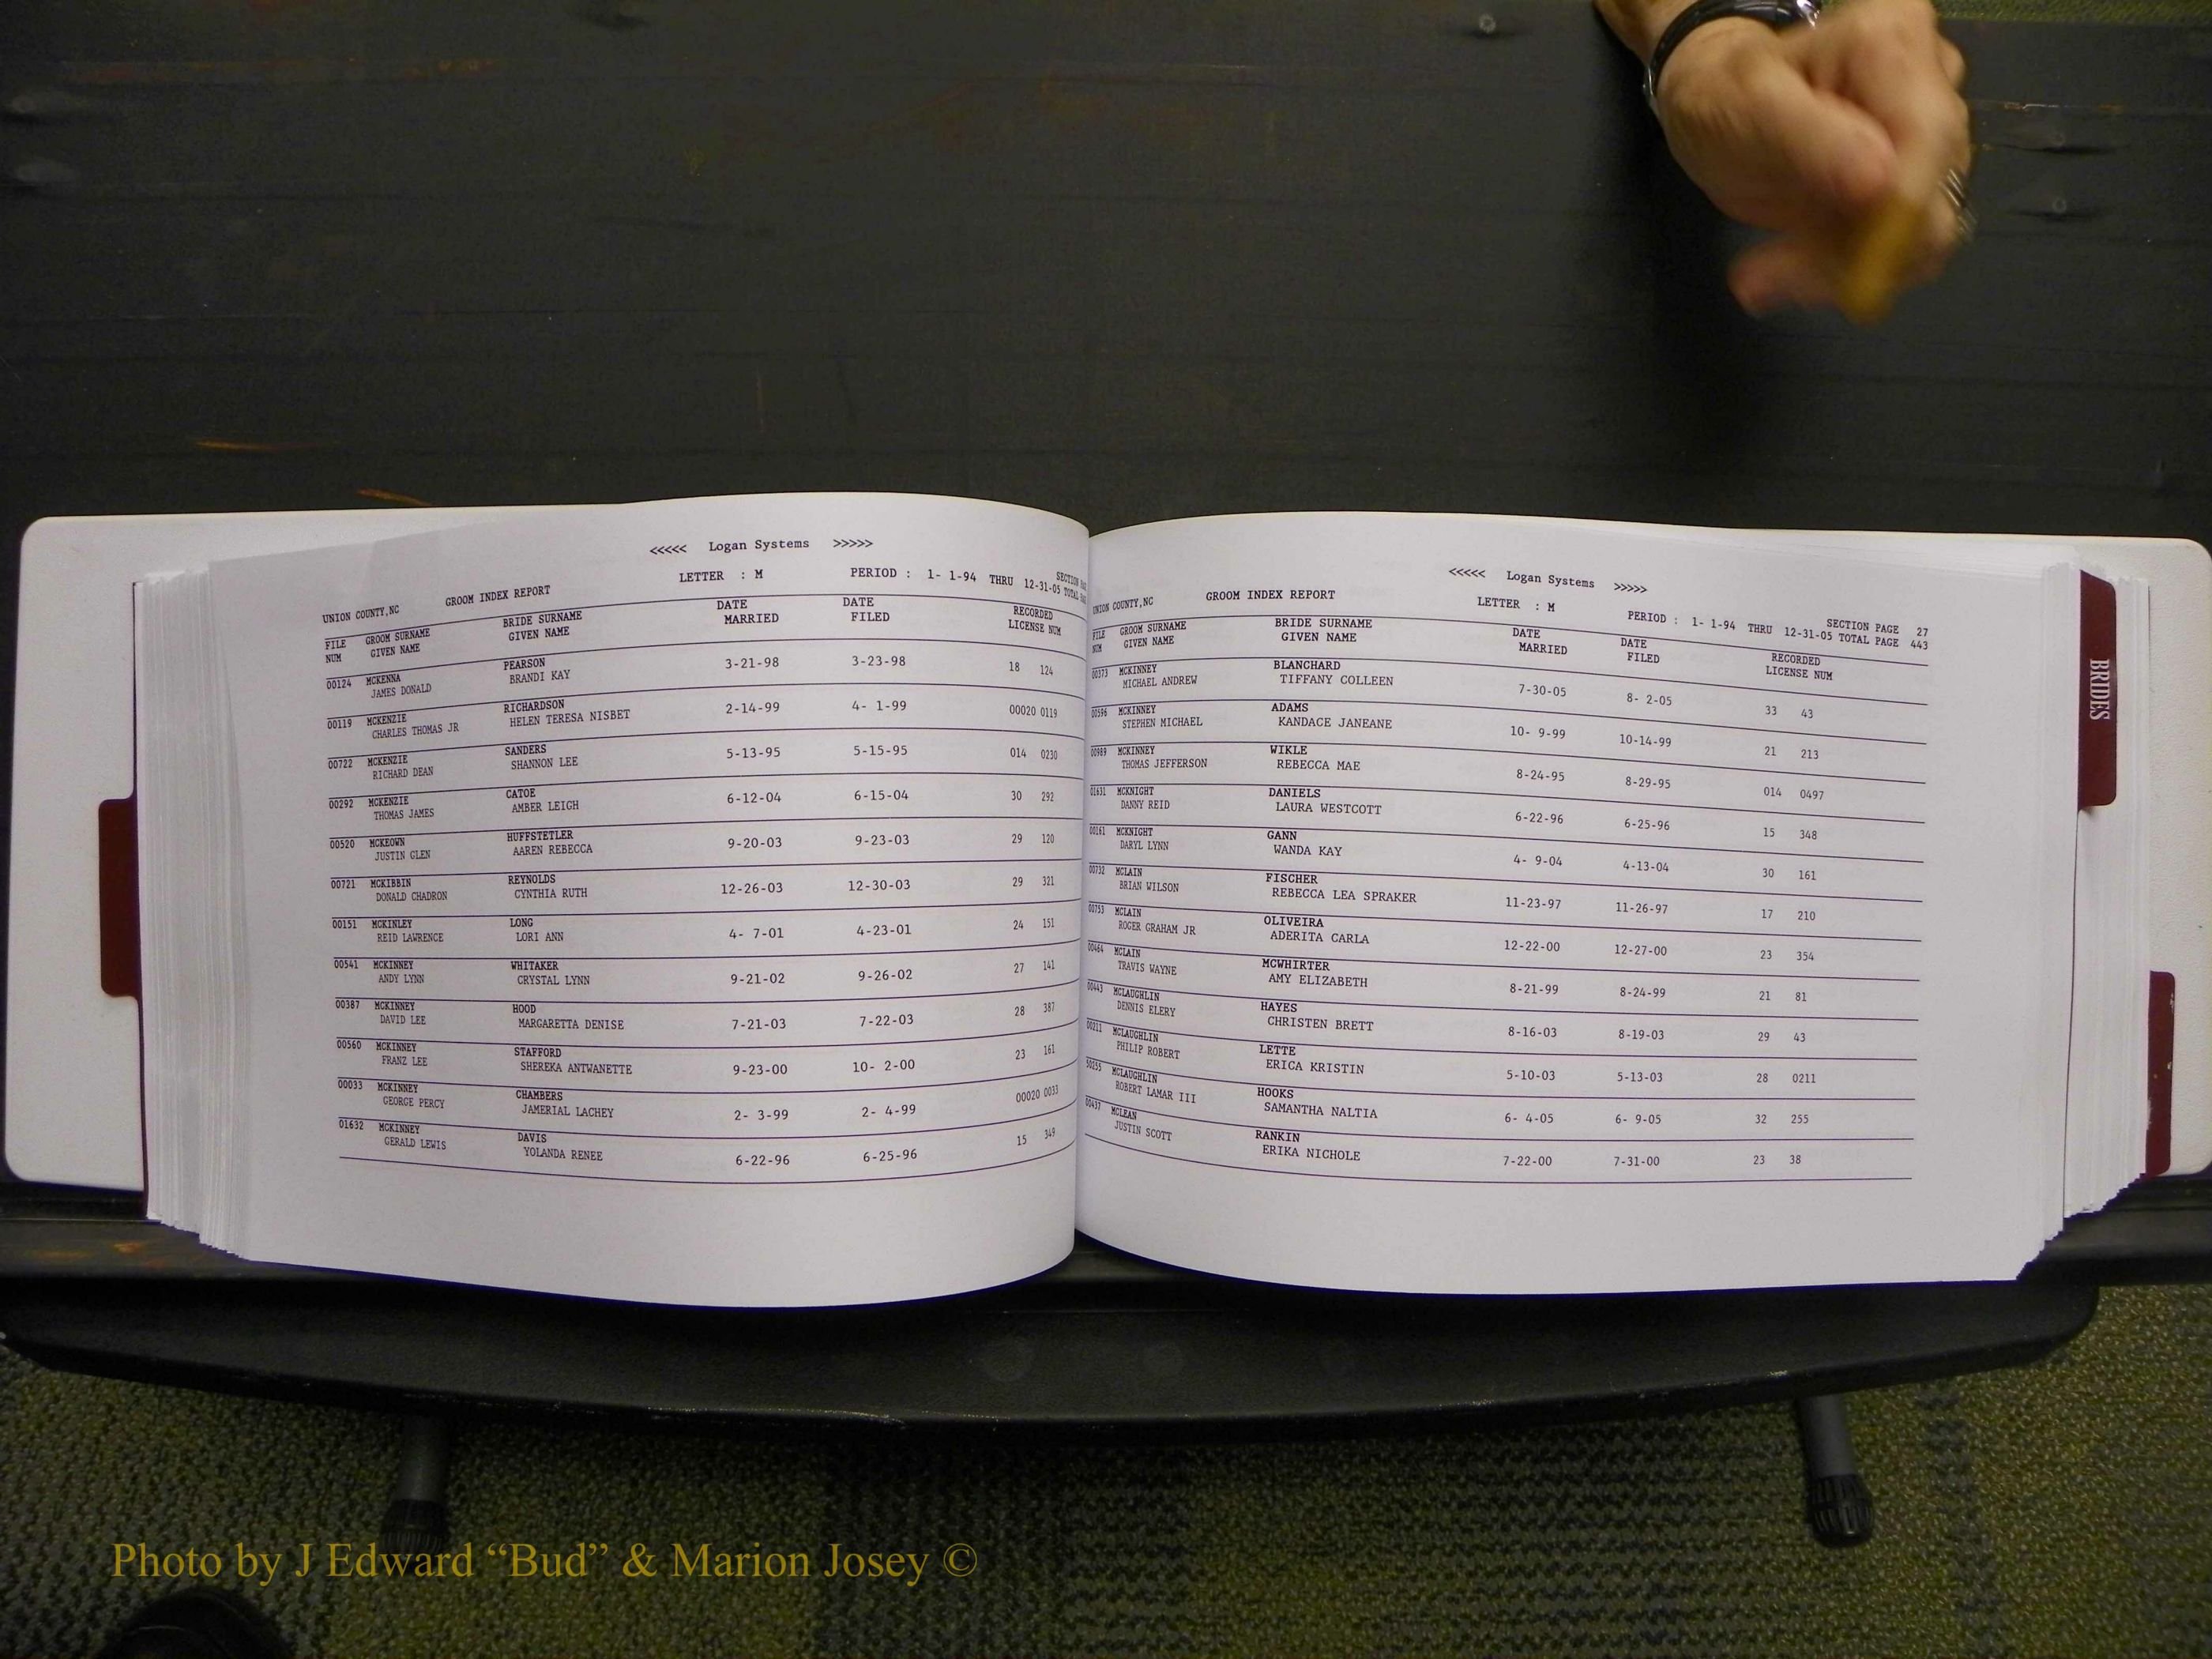 <<<<< Logan Systems >>>>>
UNION COUNTY,NC GROOM INDEX REPORT LETTER : M PERIOD : 1- 1-94 THRU 12-31-05 TOTAL
SECTION
FILE GROOM SURNAME BRIDE SURNAME DATE DATE RECORDED
NUM GIVEN NAME GIVEN NAME MARRIED FILED LICENSE NUM
00124 MCKENNA PEARSON 3-21-98 3-23-98 18 124
JAMES DONALD BRANDI KAY
00119 MCKENZIE RICHARDSON 2-14-99 4- 1-99 00020 0119
CHARLES THOMAS JR HELEN TERESA NISBET
00722 MCKENZIE SANDERS 5-13-95 5-15-95 014 0230
RICHARD DEAN SHANNON LEE
00292 MCKENZIE CATOE 6-12-04 6-15-04 30 292
THOMAS JAMES AMBER LEIGH
00520 MCKEOWN HUFFSTETLER 9-20-03 9-23-03 29 120
JUSTIN GLEN AAREN REBECCA
00721 MCKIBBIN REYNOLDS 12-26-03 12-30-03 29 321
DONALD CHADRON CYNTHIA RUTH
00151 MCKINLEY LONG 4- 7-01 4-23-01 24 151
REID LAWRENCE LORI ANN
00541 MCKINNEY WHITAKER 9-21-02 9-26-02 27 141
ANDY LYNN CRYSTAL LYNN
00387 MCKINNEY HOOD 7-21-03 7-22-03 28 387
DAVID LEE MARGARETTA DENISE
00560 MCKINNEY STAFFORD 9-23-00 10- 2-00 23 161
FRANZ LEE SHEREKA ANTWANETTE
00033 MCKINNEY CHAMBERS 2- 3-99 2- 4-99 00020 0033
GEORGE PERCY JAMERIAL LACHEY
01632 MCKINNEY DAVIS 6-22-96 6-25-96 15 349
GERALD LEWIS YOLANDA RENEE
<<<<< Logan Systems >>>>>
UNION COUNTY,NC GROOM INDEX REPORT LETTER : M PERIOD : 1- 1-94 THRU 12-31-05 TOTAL PAGE 443
SECTION PAGE 27
FILE GROOM SURNAME BRIDE SURNAME DATE DATE RECORDED
NUM GIVEN NAME GIVEN NAME MARRIED FILED LICENSE NUM
00373 MCKINNEY BLANCHARD 7-30-05 8- 2-05 33 43
MICHAEL ANDREW TIFFANY COLLEEN
00596 MCKINNEY ADAMS 10- 9-99 10-14-99 21 213
STEPHEN MICHAEL KANDACE JANEANE
00989 MCKINNEY WIKLE 8-24-95 8-29-95 014 0497
THOMAS JEFFERSON REBECCA MAE
01631 MCKNIGHT DANIELS 6-22-96 6-25-96 15 348
DANNY REID LAURA WESTCOTT
00161 MCKNIGHT GANN 4- 9-04 4-13-04 30 161
DARYL LYNN WANDA KAY
00732 MCLAIN FISCHER 11-23-97 11-26-97 17 210
BRIAN WILSON REBECCA LEA SPRAKER
00753 MCLAIN OLIVEIRA 12-22-00 12-27-00 23 354
ROGER GRAHAM JR ADERITA CARLA
00464 MCLAIN MCWHIRTER 8-21-99 8-24-99 21 81
TRAVIS WAYNE AMY ELIZABETH
00443 MCLAUGHLIN HAYES 8-16-03 8-19-03 29 43
DENNIS ELERY CHRISTEN BRETT
00211 MCLAUGHLIN LETTE 5-10-03 5-13-03 28 0211
PHILIP ROBERT ERICA KRISTIN
MCLAUGHLIN HOOKS 6- 4-05 6- 9-05 32 255
ROBERT LAMAR III SAMANTHA NALTIA
00437 MCLEAN RANKIN 7-22-00 7-31-00 23 38
JUSTIN SCOTT ERIKA NICHOLE
BRIDES
Photo by J Edward “Bud” & Marion Josey ©